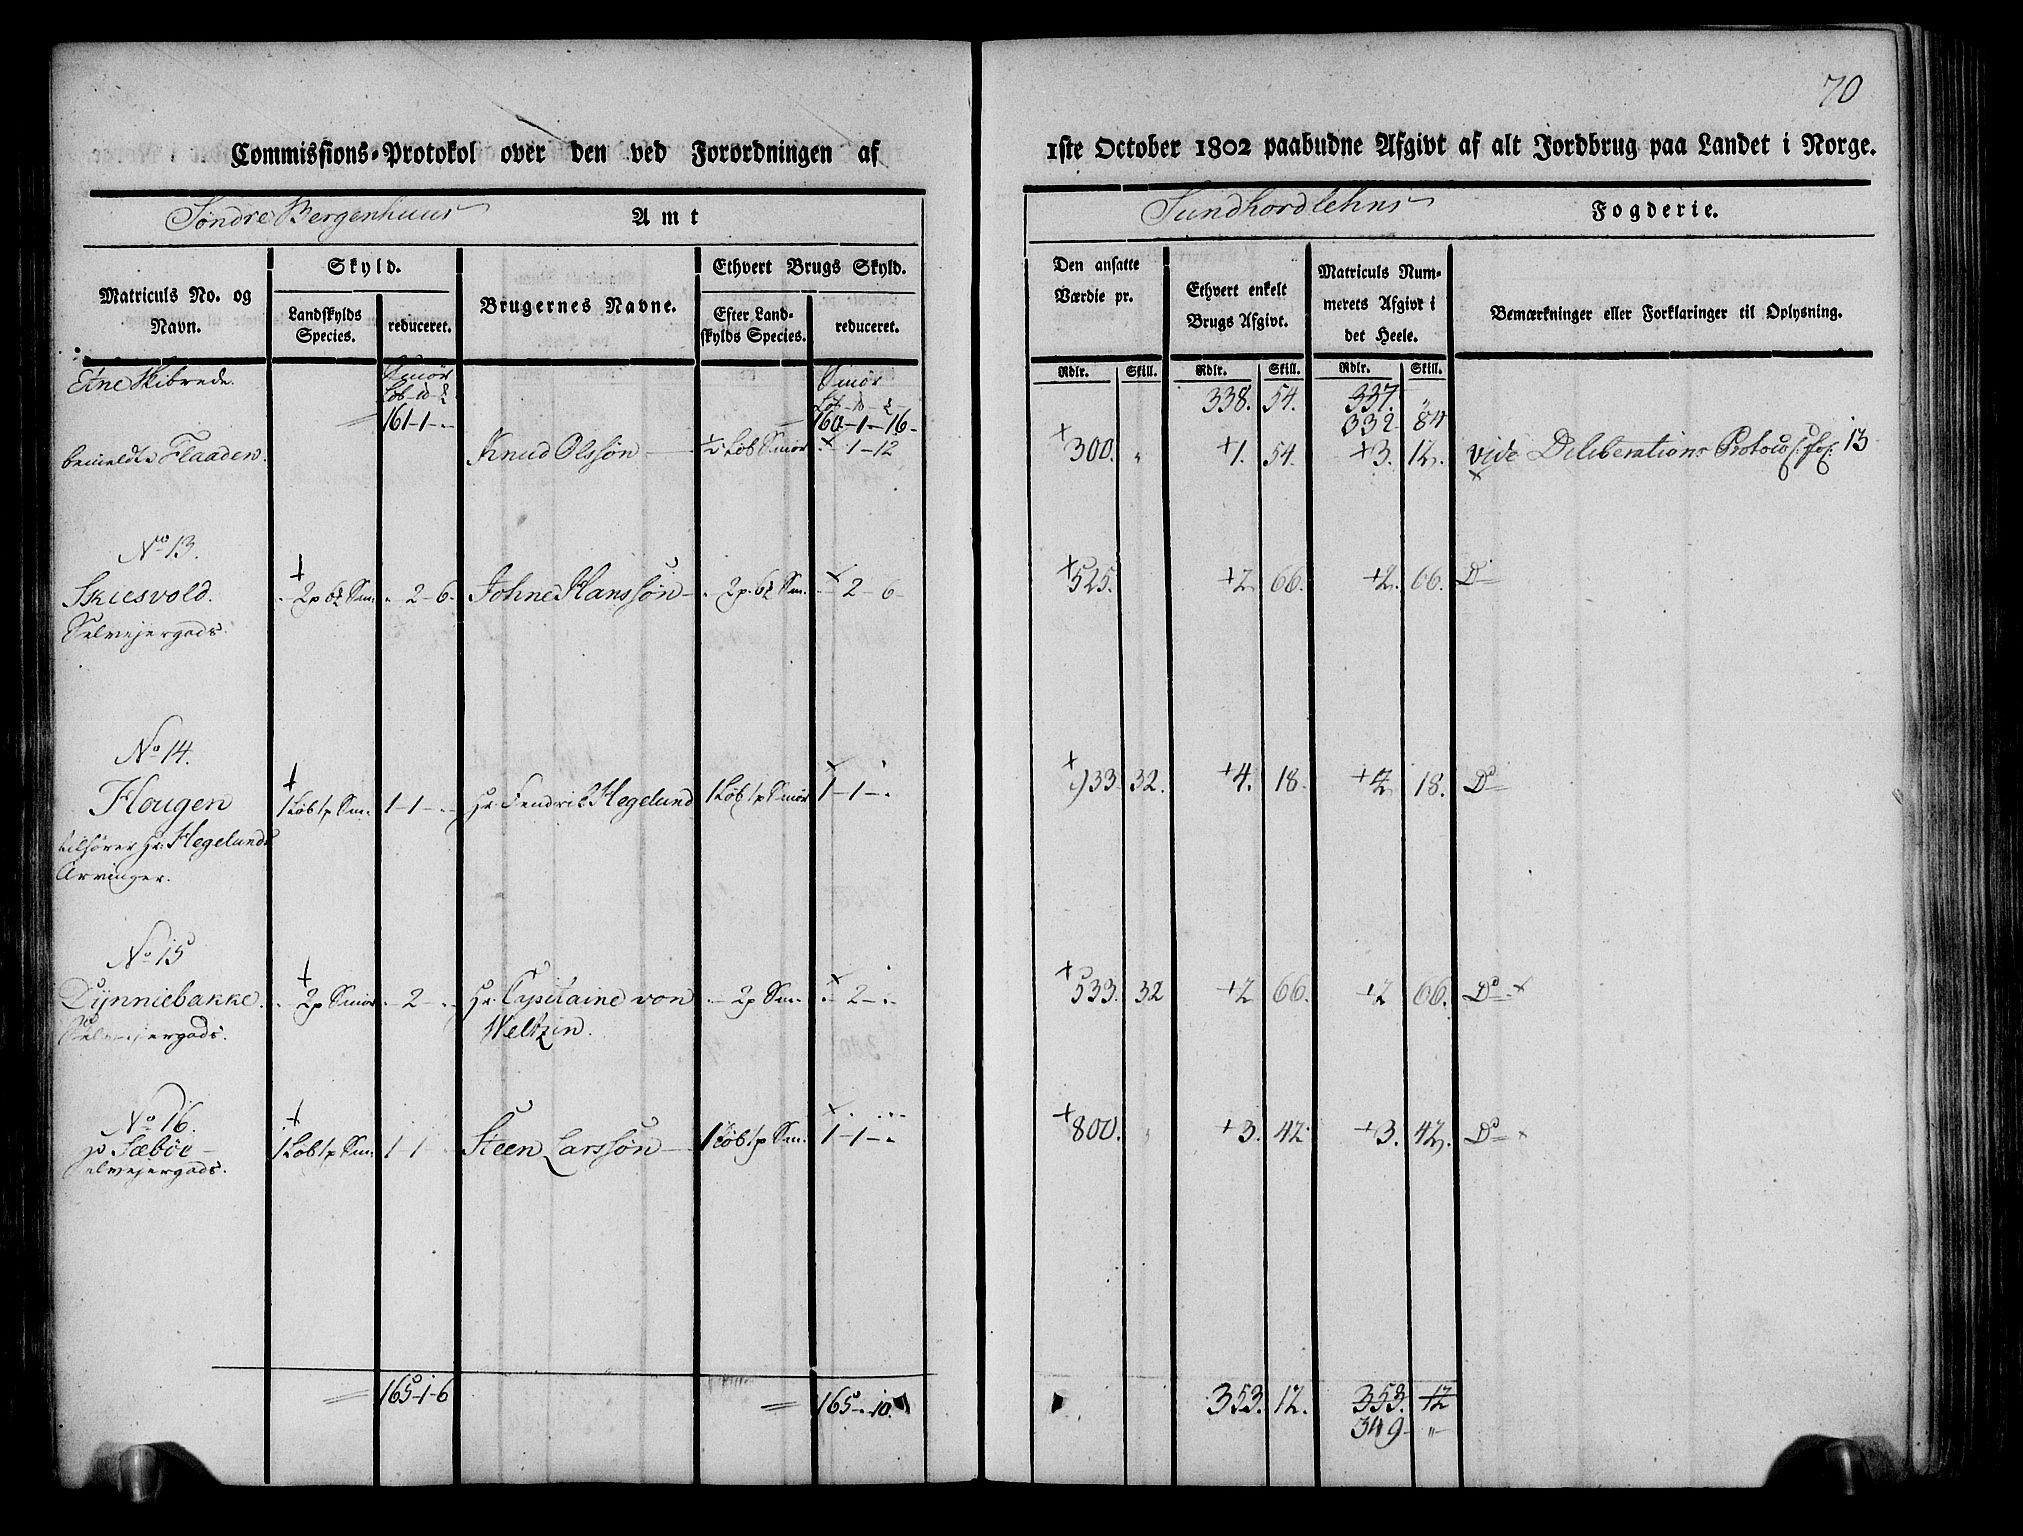 70
Commissions-Protokol over den ved Forordningen af
1ste October 1802 paabudne Afgivt af alt Jordbrug paa Landet i Norge.
Søndre Bergenhuus Amt
Sundhordlehns Fogderie.
Matriculs No. og Navn.
Skyld.
Landskylds Species.
reduceret.
Brugernes Navne.
Ethvert Brugs Skyld.
Efter Landskylds Species.
reduceret.
Den ansatte Værdie pr.
Ethvert enkelt Brugs Afgivt.
Matriculs Nummerets Afgivt i det Heele.
Bemærkninger eller Forklaringer til Oplysning.
Rdlr. Skill. Rdlr. Skill. Rdlr. Skill.
Etne Skibrede. Smør Smør 338. 54. 337. "
161-1-. 160-1-16- 332- 84
bemeldte Flaaden. Knud Olssøn ½ Løb Smør .-1-12 +300. " +1. 54. +3. 12. vide Deliberations Protocol: fol: 13
No 13.
Skiesvold. 2p 6 Sm. . 2-6. Johne Hanssøn . 2p. 6 Sm. - 2-6- +525. +2 66. +2. 66. Do
Selvejergods.
No 14.
Hougen 1 Løb 1p Sm. 1-1-.- Hr. Fendrik Hegelund 1 Løb 1p Smør 1-1-. +933 32. +4. 18. +4 18. Do
tilhører Hr: Hegelunds
Arvinger.
No 15
Dynniebakke. . 2p Smør . 2-. Hr. Capitaine von . 2p Sm. .-2-. +533. 32 +2 66. +2 66. Do
Selvejergods. Weltzin.
No 16.
Sæbøe 1 Løb 1p Sm. 1-1 Steen Larssøn 1 Løb 1p Sm. 1-1-. +800. " +3. 42. +3. 42. Do
Selvejergods.
165-1-6 165-.10. 353. 12. 353. 12
349- "